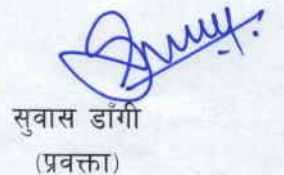 सुवास डाँगी
(प्रवक्ता)